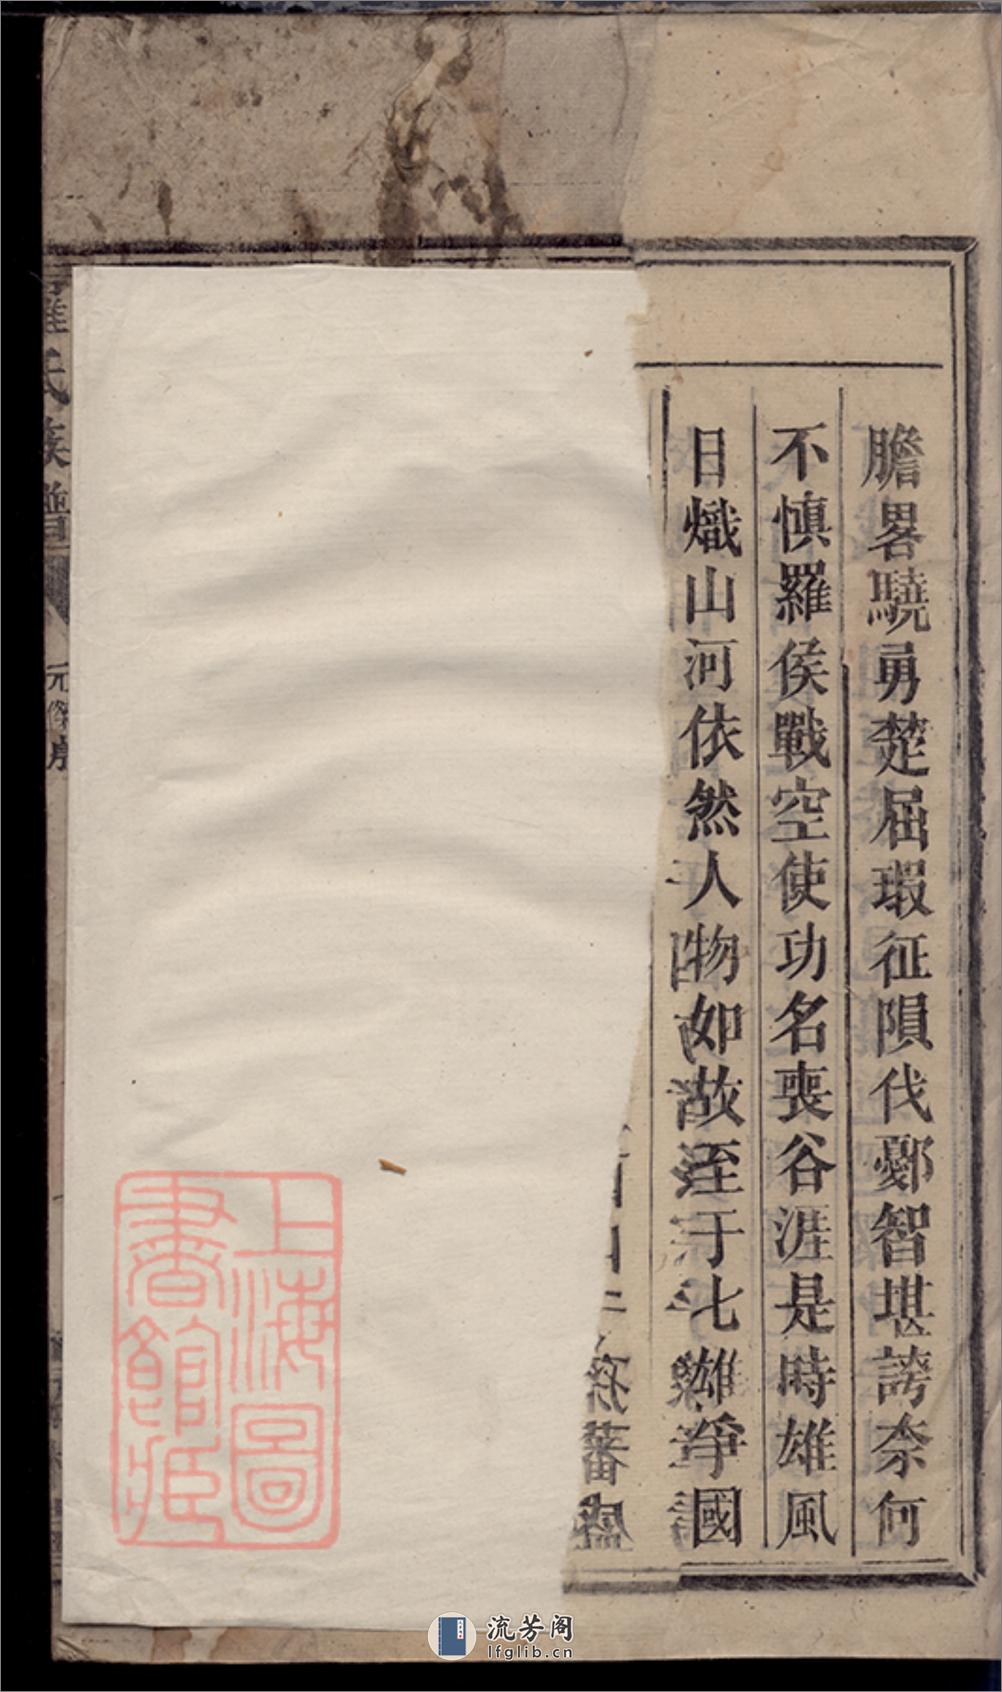 膽畧驍勇楚屈瑕征隕伐鄾智堪誇奈何
不慎羅侯戰空使功名喪谷涯是時雄風
日熾山河依然人物如故至于七雄爭國
孫蕃盛
羅氏族譜
上海圖書館藏
流芳阁
lfglib.cn